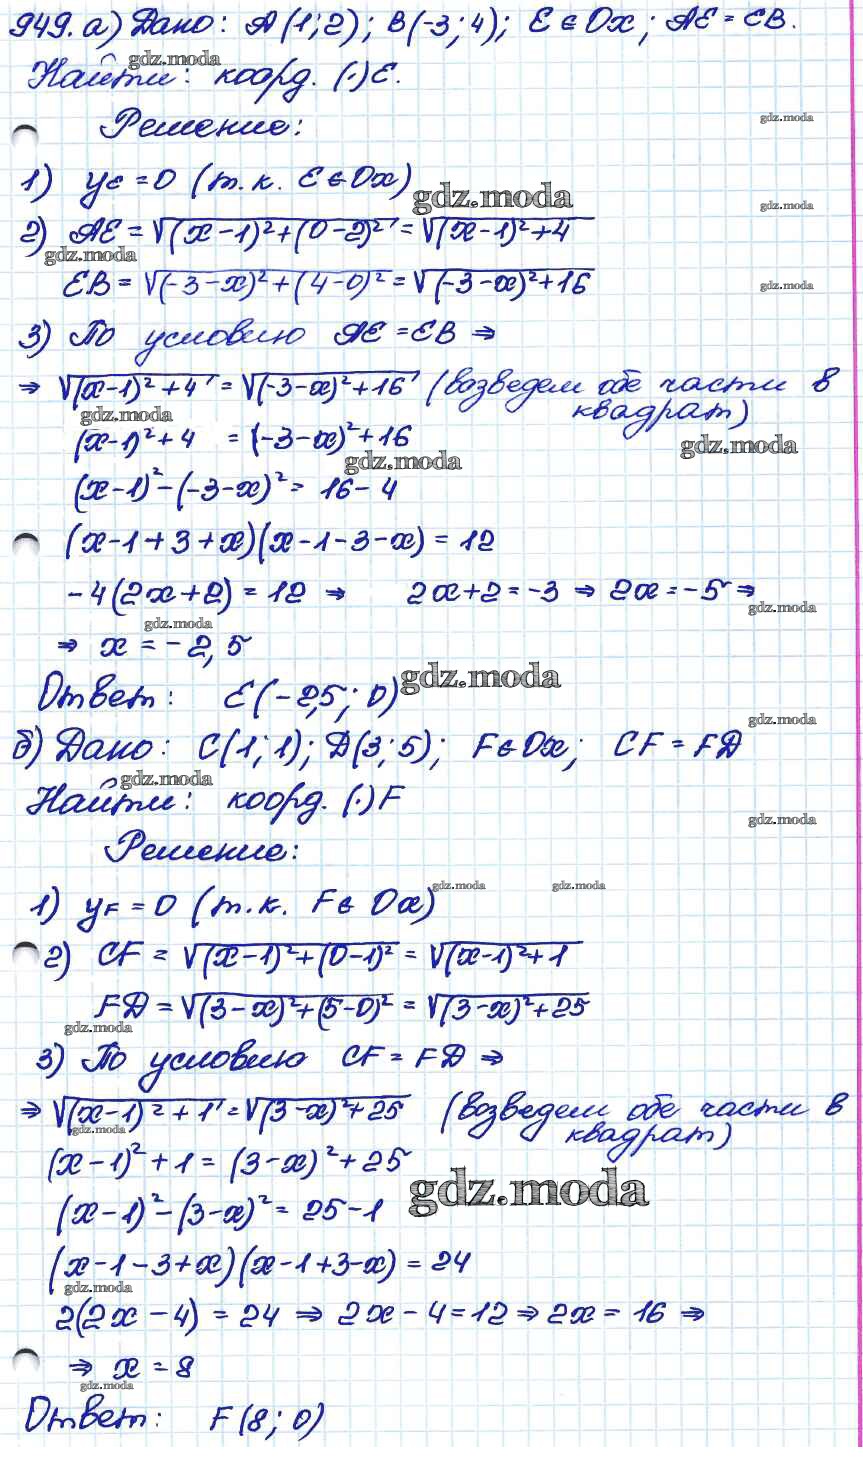 949. а) Дано: A(1; 2); B(-3; 4); E ∈ Ox; AE = EB.
gdz.moda
Найти: коорд. (·) E.
Решение:
gdz.moda
1) yE = 0 (т.к. E ∈ Ox)
gdz.moda
gdz.moda
2) AE = √((x-1)²+(0-2)²) = √((x-1)²+4)
gdz.moda
EB = √((-3-x)²+(4-0)²) = √((-3-x)²+16)
gdz.moda
3) По условию AE = EB ⇒
⇒ √((x-1)²+4) = √((-3-x)²+16) (возведем обе части в
квадрат)
gdz.moda
(x-1)²+4 = (-3-x)²+16
gdz.moda
gdz.moda
(x-1)²-(-3-x)² = 16-4
(x-1+3+x)(x-1-3-x) = 12
-4(2x+2) = 12 ⇒ 2x+2 = -3 ⇒ 2x = -5 ⇒
gdz.moda
gdz.moda
⇒ x = -2,5
gdz.moda
Ответ: E(-2,5; 0)
gdz.moda
б) Дано: C(1; 1); D(3; 5); F ∈ Ox; CF = FD
gdz.moda
Найти: коорд. (·) F
gdz.moda
Решение:
gdz.moda gdz.moda
1) yF = 0 (т.к. F ∈ Ox)
2) CF = √((x-1)²+(0-1)²) = √((x-1)²+1)
FD = √((3-x)²+(5-0)²) = √((3-x)²+25)
gdz.moda
3) По условию CF = FD ⇒
⇒ √((x-1)²+1) = √((3-x)²+25) (возведем обе части в
квадрат)
gdz.moda
(x-1)²+1 = (3-x)²+25
gdz.moda
(x-1)²-(3-x)² = 25-1
(x-1-3+x)(x-1+3-x) = 24
gdz.moda
2(2x-4) = 24 ⇒ 2x-4 = 12 ⇒ 2x = 16 ⇒
⇒ x = 8
gdz.moda
Ответ: F(8; 0)